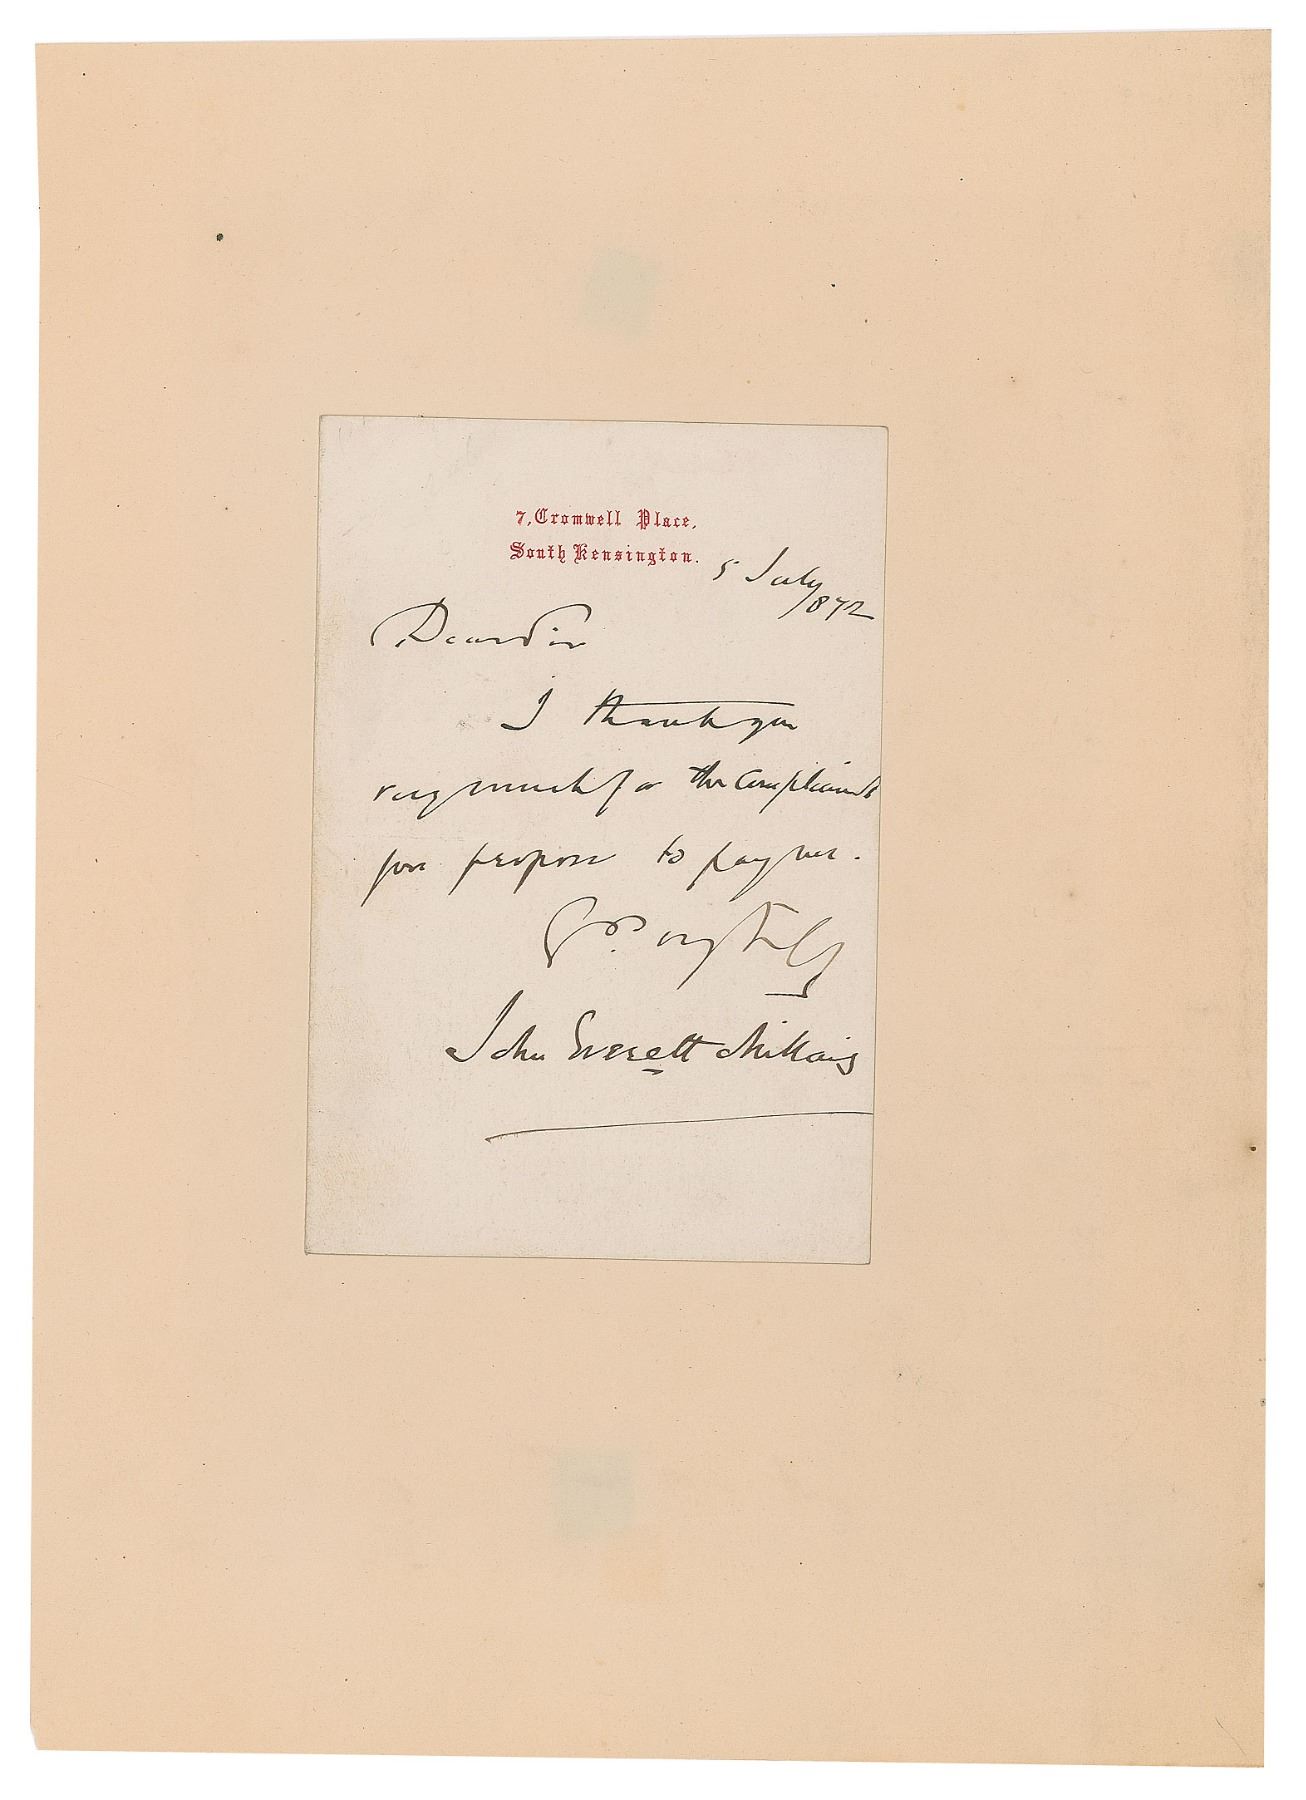 7, Cromwell Place,
South Kensington.
5 July
1872
Dear Sir
I thank you
very much for the compliment
you propose to pay me.
Yrs. very truly
John Everett Millais